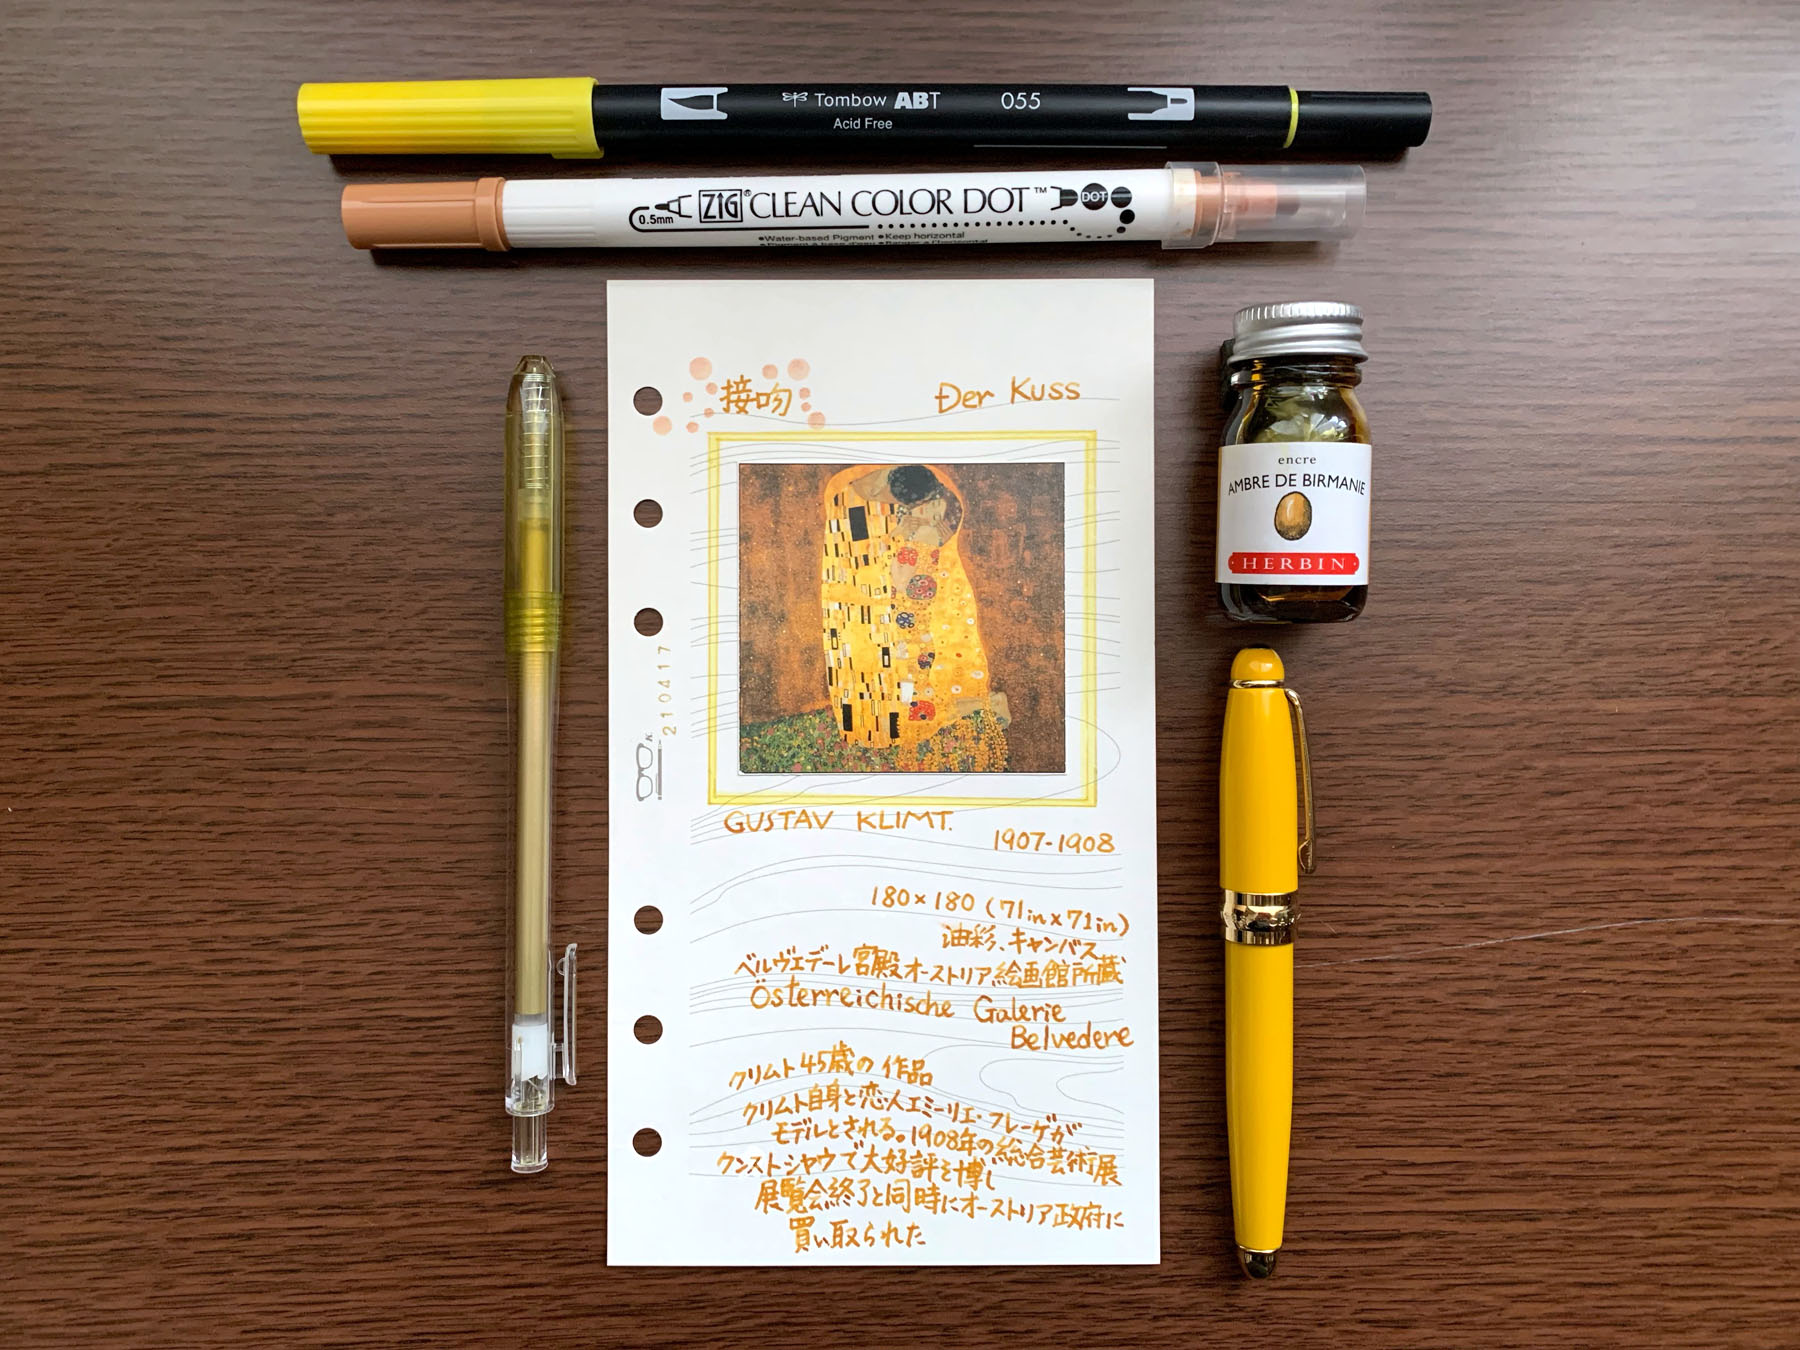 Tombow ABT 055
Acid Free
0.5mm ZIG® CLEAN COLOR DOT™ DOT
•Water-based Pigment •Keep horizontal
接吻 Der Kuss
210417
K.
GUSTAV KLIMT.
1907-1908
180×180 (71in×71in)
油彩、キャンバス、
ベルヴェデーレ宮殿オーストリア絵画館所蔵
Österreichische Galerie
Belvedere
クリムト45歳の作品
クリムト自身と恋人エミーリエ・フレーゲが
モデルとされる。1908年の総合芸術展
クンストシャウで大好評を博し
展覧会終了と同時にオーストリア政府に
買い取られた
encre
AMBRE DE BIRMANIE
HERBIN